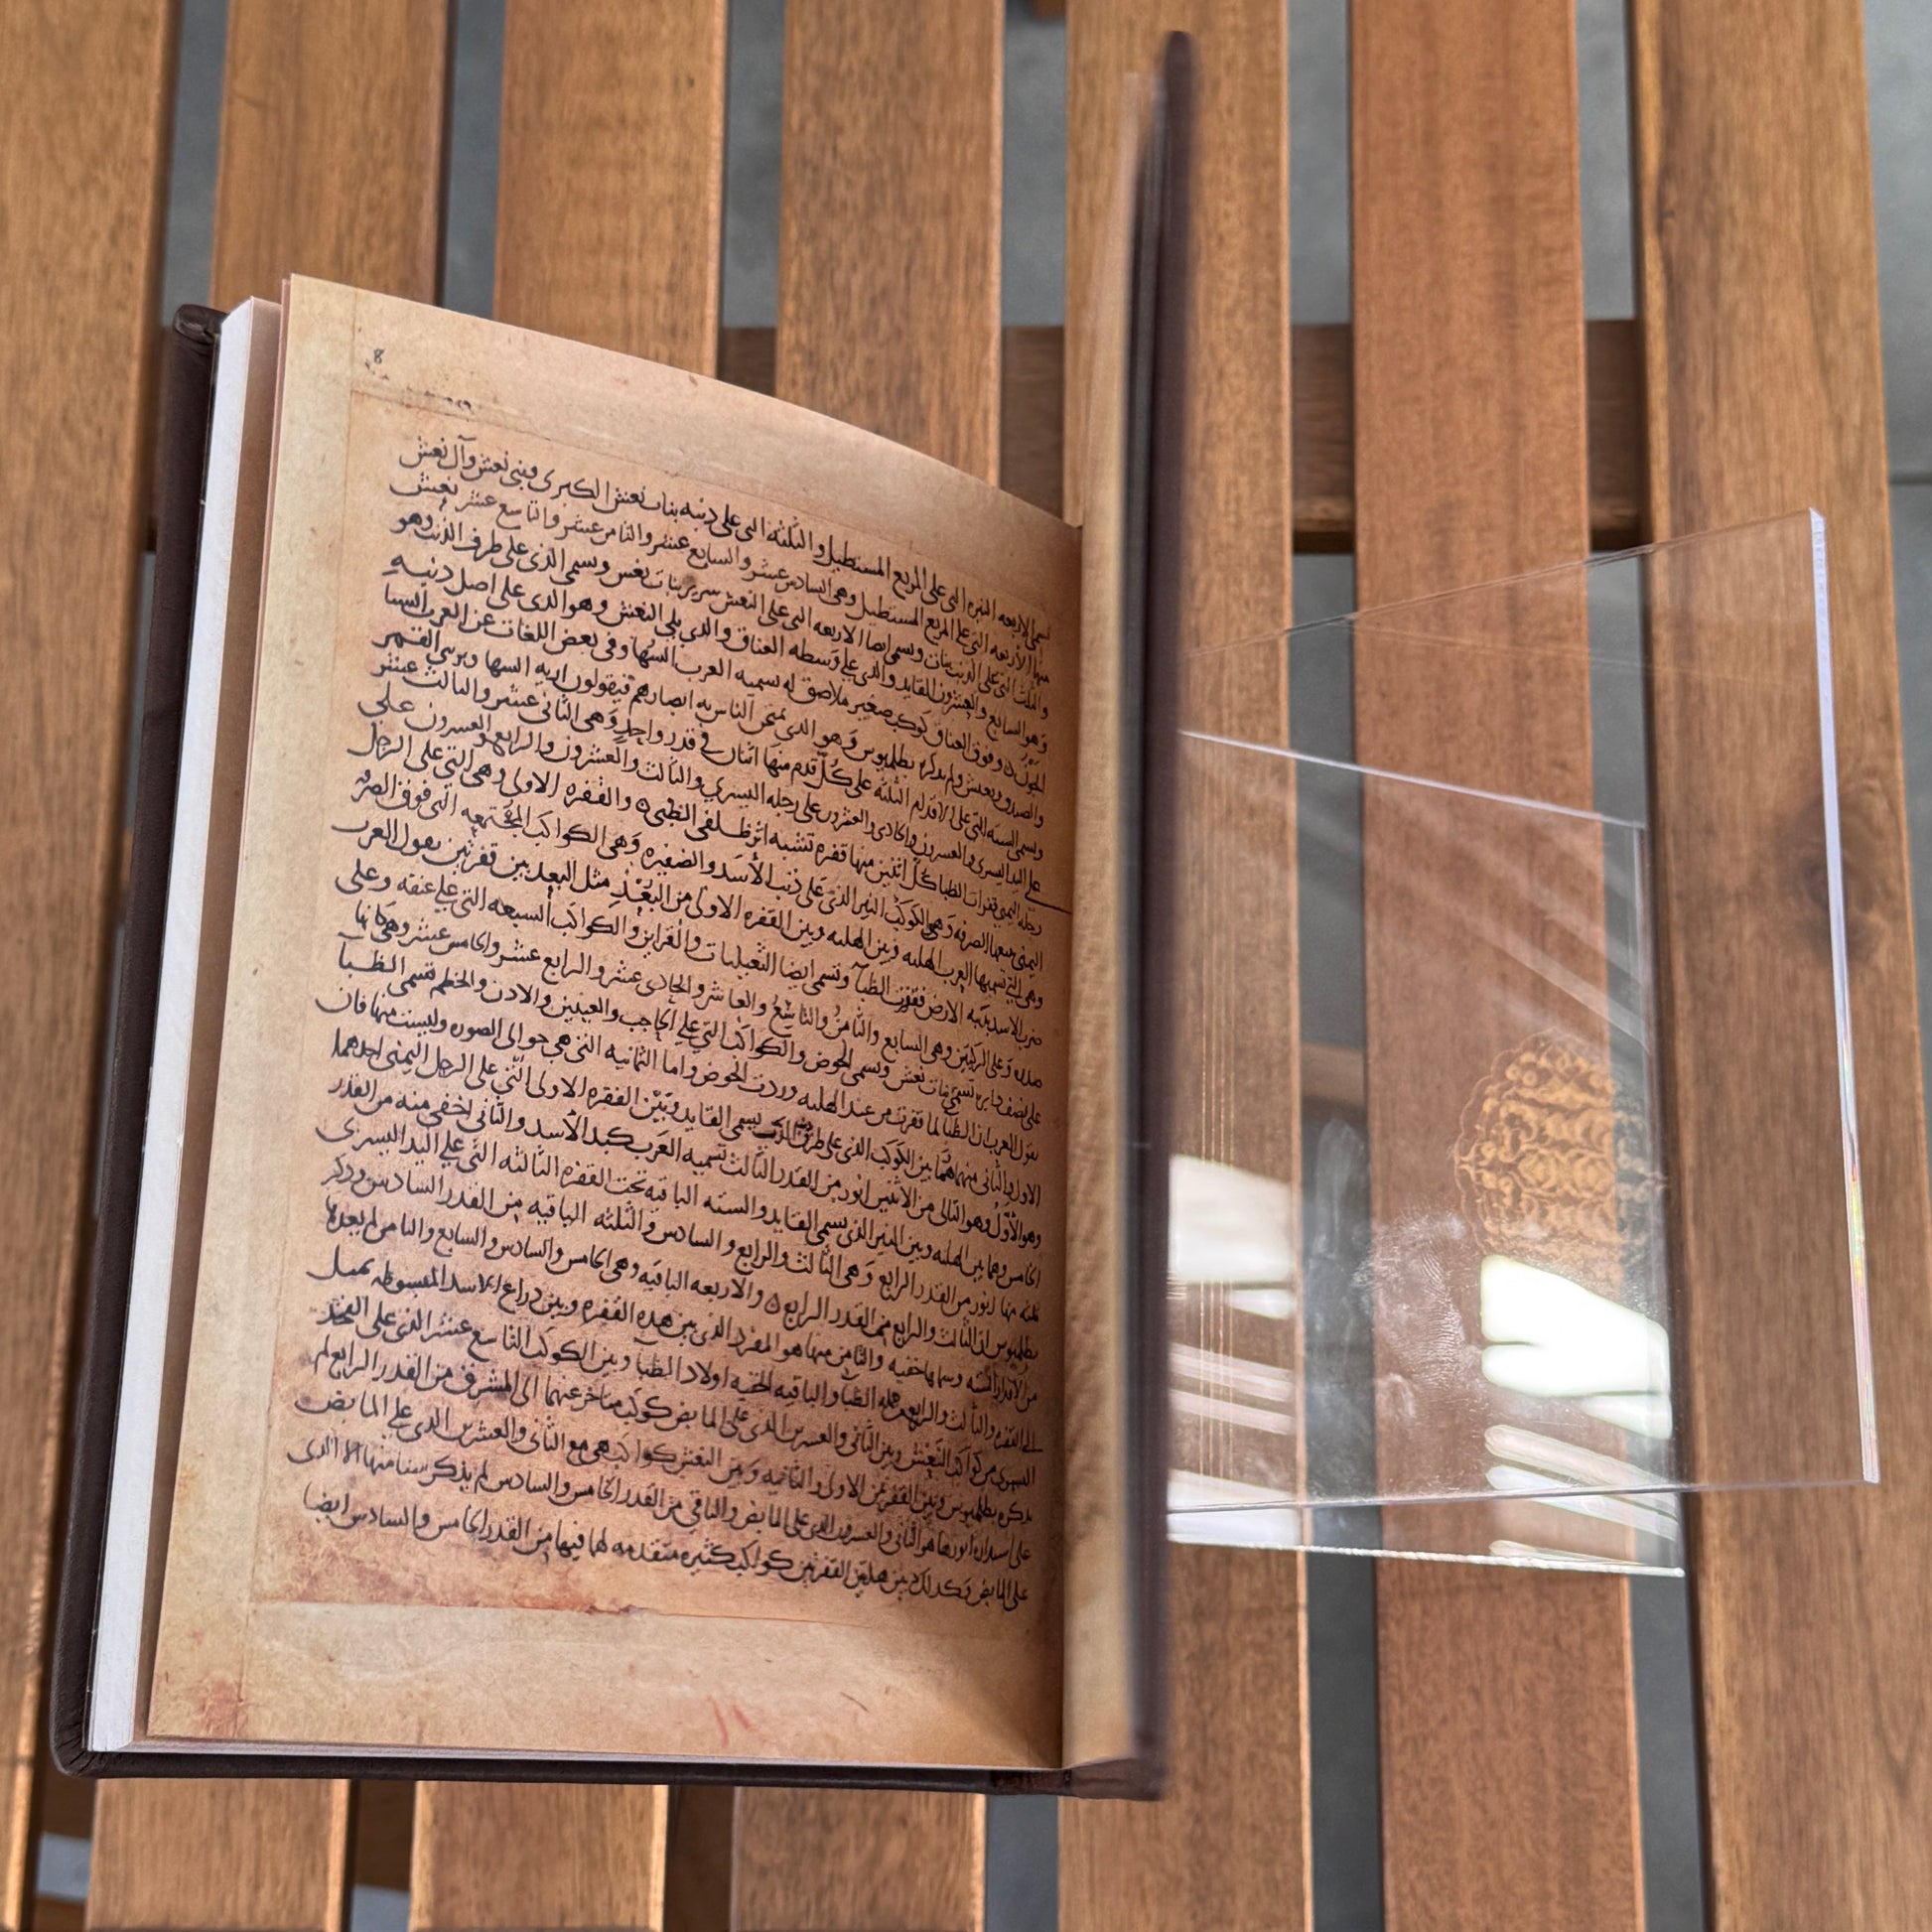 8
الاربعه النيره التى على المربع المستطيل والثلثه التى على ذنبه بنات نعش الكبرى وبنى نعش وآل نعش
منها الأربعه التى على المربع المستطيل وهى السادس عشر والسابع عشر والثامن عشر والتاسع عشر نعش
التى على الذنب بنات وتسمى ايضا الاربعه التى على النعش سرير بنات نعش وسمى الذى على طرف الذنب وهو
وهو السابع والعشرون القايد والذى على وسطه العناق والذى يلى النعش وهو الذى على اصل ذنبه
وفوق العناق كوكب صغير ملاصق له تسميه العرب السها وفى بعض اللغات عن العرب الستا
ولم يذكره بطلميوس وهو الذى يمتحن الناس به ابصارهم فيقولون اريه السها ويرينى القمر
وسمى السته التى على الاقدام الثلثه على كل قدم منها اثنان فى قدر واحد وهى الثانى عشر والثالث عشر
على اليد اليسرى والعشرون والحادى والعشرون على رجله اليسرى والثالث والعشرون والرابع والعشرون على
رجله اليمنى قفزات الظبا كل اثنين منها قفزه تشبه اثر ظلفى الظبى والقفزه الاولى وهى التى على الرجل
اليمنى الصرفه وهى الكوكب النير الذى على ذنب الأسد والضفيره وهى الكواكب المجتمعه التى فوق الصرفه
وهى التى تسميها العرب الهلبه وبين الهلبه وبين القفزه الاولى من البعد مثل البعد بين قفزتين يقول العرب
ضرب الاسد بذنبه الارض فقفزت الظبا وتسمى ايضا الثعيلبات والقراين والكواكب السبعه التى على عنقه وعلى
وعلى الركبتين وهى السابع والثامن والتاسع والعاشر والحادى عشر والرابع عشر والخامس عشر وهى كانها
على نصف دايره تسمى بنات نعش وتسمى الحوض والكواكب التى على الحاجب والعينين والاذن والخطم تسمى الظبا
يقول العرب ان الظبا لما قفزت من عند الهلبه وردت الحوض واما الثمانيه التى هى حوالى الصوره وليست منها فان
الاول والثانى منهما هما بين الكوكب الذى على طرف الذنب يسمى القايد وبين القفزه الاولى التى على الرجل اليمنى احدهما
وهو الأول وهو التالى من الاثنين انور من القدر الثالث تسميه العرب كبد الأسد والثانى اخفى منه من القدر
الخامس وهما بين الهلبه وبين النير الذى يسمى القايد والسته الباقيه تحت القفزه الثالثه التى على اليد اليسرى
ثلثه منها انور من القدر الرابع وهى الثالث والرابع والسادس والثلثه الباقيه من القدر السادس وذكر
بطلميوس ان الثالث والرابع من القدر الرابع والاربعه الباقيه وهى الخامس والسادس والسابع والثامن لم يعدها
من الأقدار الستة وسماها خفيه والثامن منها هو المفرد الذى بين هذه القفزه وبين ذراع الاسد المبسوطه تميل
الى القفزه والثالث والرابع وجمله الظبا والباقيه الخفيه اولاد الظبا وبين الكوكب التاسع عشر الذى على الفخذ
اليسرى من كواكب النعش وبين الثانى والعشرين الذى على المابض كوكب متاخر عنهما الى المشرق من القدر الرابع لم
يذكره بطلميوس وبين القفزتين الاولى والثانيه وبين النعش كواكب هى مع الثانى والعشرين الذى على المابض
على استداره انورها هو الثانى والعشرون الذى على المابض والباقى من القدر الخامس والسادس لم يذكر شيئا منها الا الذى
على المابض وكذلك بين هاتين القفزتين كواكب كثيره متقدمه لهما فيها من القدر الخامس والسادس ايضا